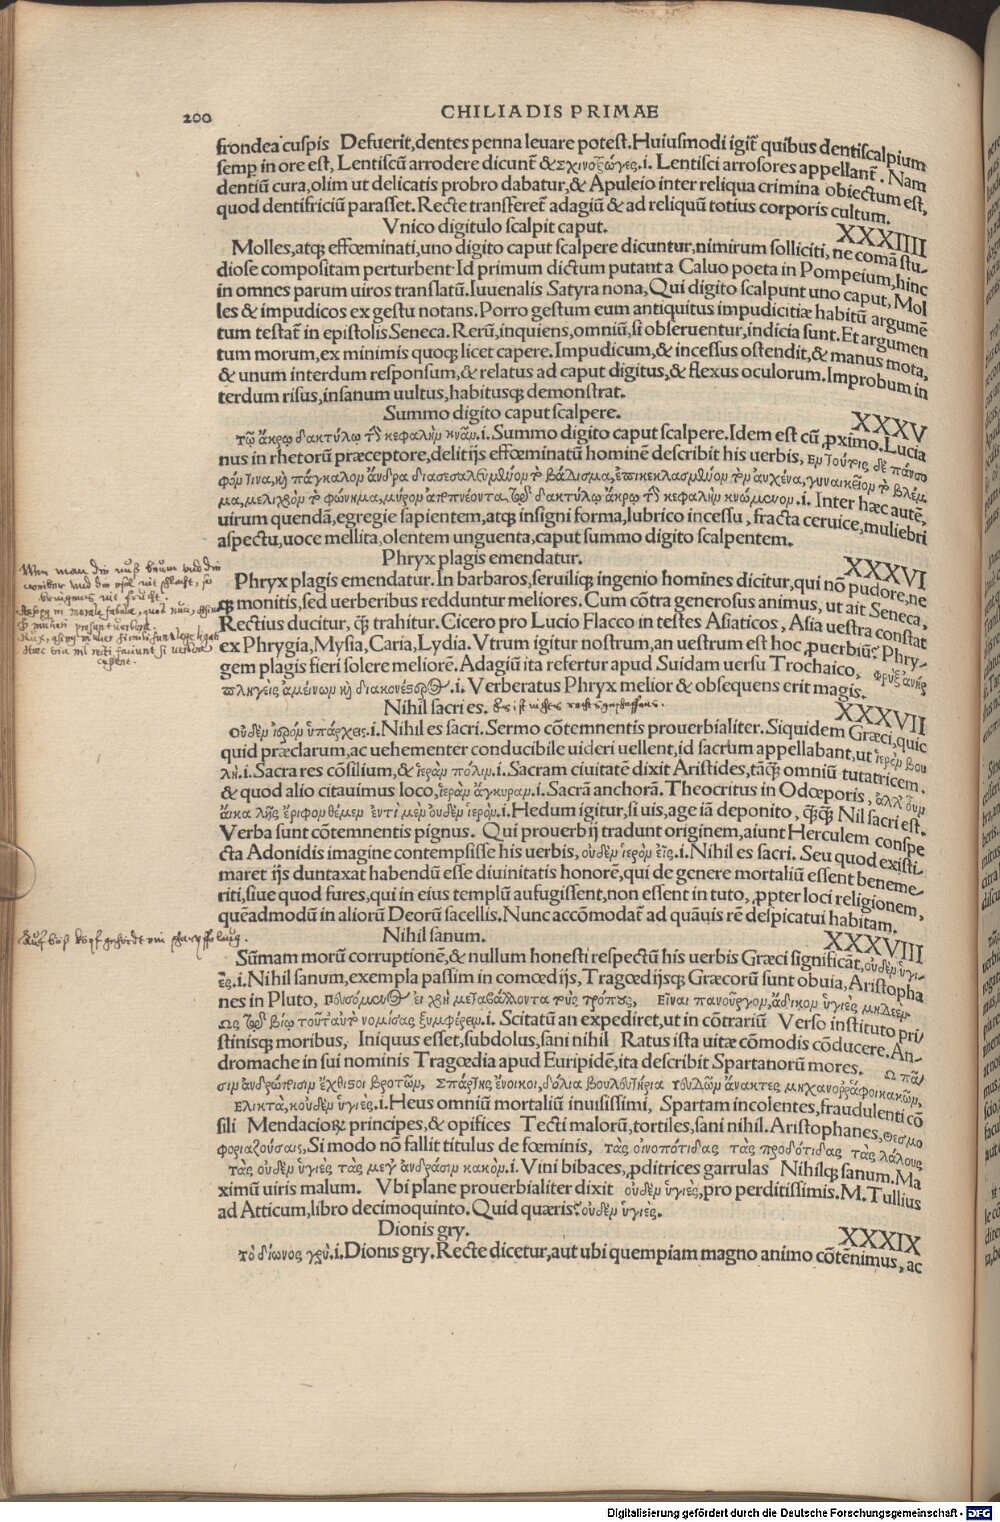 200
CHILIADIS PRIMAE
frondea cuspis Defuerit,dentes penna leuare potest.Huiusmodi igit̃ quibus dentiscalpium
semp in ore est, Lentiscũ arrodere dicunt̃ & σχινοξώγες.i. Lentisci arrosores appellant̃. Nam
dentiũ cura,olim ut delicatis probro dabatur,& Apuleio inter reliqua crimina obiectum est,
quod dentifriciũ parasset. Recte transferet̃ adagiũ & ad reliquũ totius corporis cultum.
Vnico digitulo scalpit caput. XXXIIII
Molles,atq; effœminati,uno digito caput scalpere dicuntur,nimirum solliciti, ne comã stu-
diose compositam perturbent Id primum dictum putant a Caluo poeta in Pompeium,hinc
in omnes parum uiros translatũ.Iuuenalis Satyra nona, Qui digito scalpunt uno caput, Mol
les & impudicos ex gestu notans. Porro gestum eum antiquitus impudicitiæ habitũ argumẽ
tum testat̃ in epistolis Seneca. Rerũ,inquiens,omniũ,si obseruentur,indicia sunt. Et argumen
tum morum,ex minimis quoq; licet capere. Impudicum,& incessus ostendit,& manus mota,
& unum interdum responsum,& relatus ad caput digitus,& flexus oculorum. Improbum in
terdum risus,insanum uultus,habitusq; demonstrat.
Summo digito caput scalpere. XXXV
τῷ ἄκρῳ δακτύλῳ τὴν κεφαλὴν κνᾶν.i. Summo digito caput scalpere. Idem est cũ ꝓximo. Lucia
nus in rhetorũ præceptore,delitijs effœminatũ hominẽ describit his uerbis,
φόν τινα,κỳ πάγκαλον ἄνδρα διασεσαλευμένον τὸ βάδισμα,ἐπικεκλασμένον τὸν αὐχένα,γυναικεῖον τὸ βλέμ
μα,μελιχρὸν τὸ φώνημα,μύρον ἀποπνέοντα,τῷ δακτύλῳ ἄκρῳ τὴν κεφαλὴν κνώμενον.i. Inter hæc autẽ,
uirum quendã,egregie sapientem,atq; insigni forma,lubrico incessu, fracta ceruice,muliebri
aspectu,uoce mellita,olentem unguenta,caput summo digito scalpentem.
Phryx plagis emendatur. XXXVI
Phryx plagis emendatur. In barbaros,seruiliq; ingenio homines dicitur,qui nõ pudore,ne
q; monitis,sed uerberibus redduntur meliores. Cum cõtra generosus animus, ut ait Seneca,
Rectius ducitur, q̃; trahitur. Cicero pro Lucio Flacco in testes Asiaticos, Asia uestra constat
ex Phrygia, Mysia, Caria, Lydia. Vtrum igitur nostrum,an uestrum est hoc ꝓuerbiũ: Phry-
gem plagis fieri solere meliorẽ. Adagiũ ita refertur apud Suidam uersu Trochaico, φρὺξ ἀνὴρ
πληγεὶς ἀμείνων κỳ διακονέστερος.i. Verberatus Phryx melior & obsequens erit magis.
Nihil sacri es. XXXVII
οὐδὲν ἱερὸν ὑπάρχεις.i. Nihil es sacri. Sermo cõtemnentis prouerbialiter. Siquidem Græci,quic
quid præclarum,ac uehementer conducibile uideri uellent,id sacrum appellabant,ut ἱερὸν βου
λὴ.i. Sacra res cõsilium,& ἱερὰν πόλιν.i. Sacram ciuitatẽ dixit Aristides,tãq̃; omniũ tutatricem.
& quod alio citauimus loco,ἱερὰν ἄγκυραν.i. Sacrã anchorã. Theocritus in Odœporis, ἀλλ' οὖν
αἴκα λῇς ἔριφον θέμεν ἐντὶ μὲν οὐδὲν ἱερὸν.i. Hedum igitur,si uis,age iã deponito, q̃q̃; Nil sacri est.
Verba sunt cõtemnentis pignus. Qui prouerbij tradunt originem,aiunt Herculem conspe
cta Adonidis imagine contempsisse his uerbis, οὐδὲν ἱερὸν εἶς.i. Nihil es sacri. Seu quod existi-
maret ijs duntaxat habendũ esse diuinitatis honorẽ,qui de genere mortaliũ essent beneme-
riti,siue quod fures,qui in eius templũ aufugissent,non essent in tuto, ꝓpter loci religionem,
quẽadmodũ in aliorũ Deorũ sacellis. Nunc accõmodat̃ ad quãuis rẽ despicatui habitam.
Nihil sanum. XXXVIII
Sũmam morũ corruptionẽ,& nullum honesti respectũ his uerbis Græci significãt,οὐδὲν ὑγι-
ές.i. Nihil sanum,exempla passim in comœdijs, Tragœdijsq; Græcorũ sunt obuia, Aristopha
nes in Pluto, πευσόμενος εἰ χρὴ μεταβάλλοντα τοὺς τρόπους, Εἶναι πανοῦργον,ἄδικον ὑγιὲς μηδεὲν
Ως τῷ βίῳ τοῦτ' αὐτὸ νομίσας ξυμφέρειν.i. Scitatũ an expediret,ut in cõtrariũ Verso instituto pri/
stinisq; moribus, Iniquus esset,subdolus,sani nihil Ratus ista uitæ cõmodis cõducere. An-
dromache in sui nominis Tragœdia apud Euripidẽ,ita describit Spartanorũ mores. Ω πᾶ/
σιν ἀνθρώποισιν ἔχθιστοι βροτῶν, Σπάρτης ἔνοικοι,δόλια βουλευτήρια ψευδῶν ἄνακτες μηχανοῤῥάφοι κακῶν,
Ελικτὰ,κοὐδὲν ὑγιὲς.i. Heus omniũ mortaliũ inuisissimi, Spartam incolentes,fraudulenti cõ
sili Mendacioꝝ principes,& opifices Tecti malorũ,tortiles,sani nihil. Aristophanes,Θεσμο
φοριαζούσαις,Si modo nõ fallit titulus de fœminis, τὰς οἰνοπότιδας τὰς προδότιδας τὰς λάλους
τὰς οὐδὲν ὑγιὲς τὰς μέγ' ἀνδράσιν κακὸν.i. Vini bibaces,ꝓditrices garrulas Nihilq; sanum. Ma
ximũ uiris malum. Vbi plane prouerbialiter dixit οὐδὲν ὑγιὲς,pro perditissimis. M. Tullius
ad Atticum,libro decimoquinto. Quid quæris: οὐδὲν ὑγιὲς.
Dionis gry. XXXIX
τὸ δίωνος γρῦ.i. Dionis gry. Recte dicetur,aut ubi quempiam magno animo cõtẽnimus, ac
Digitalisierung gefördert durch die Deutsche Forschungsgemeinschaft - DFG